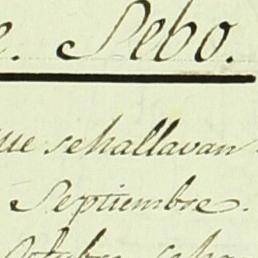 e. Sebo.
ue sehallavan
Septiembre.
Octubre